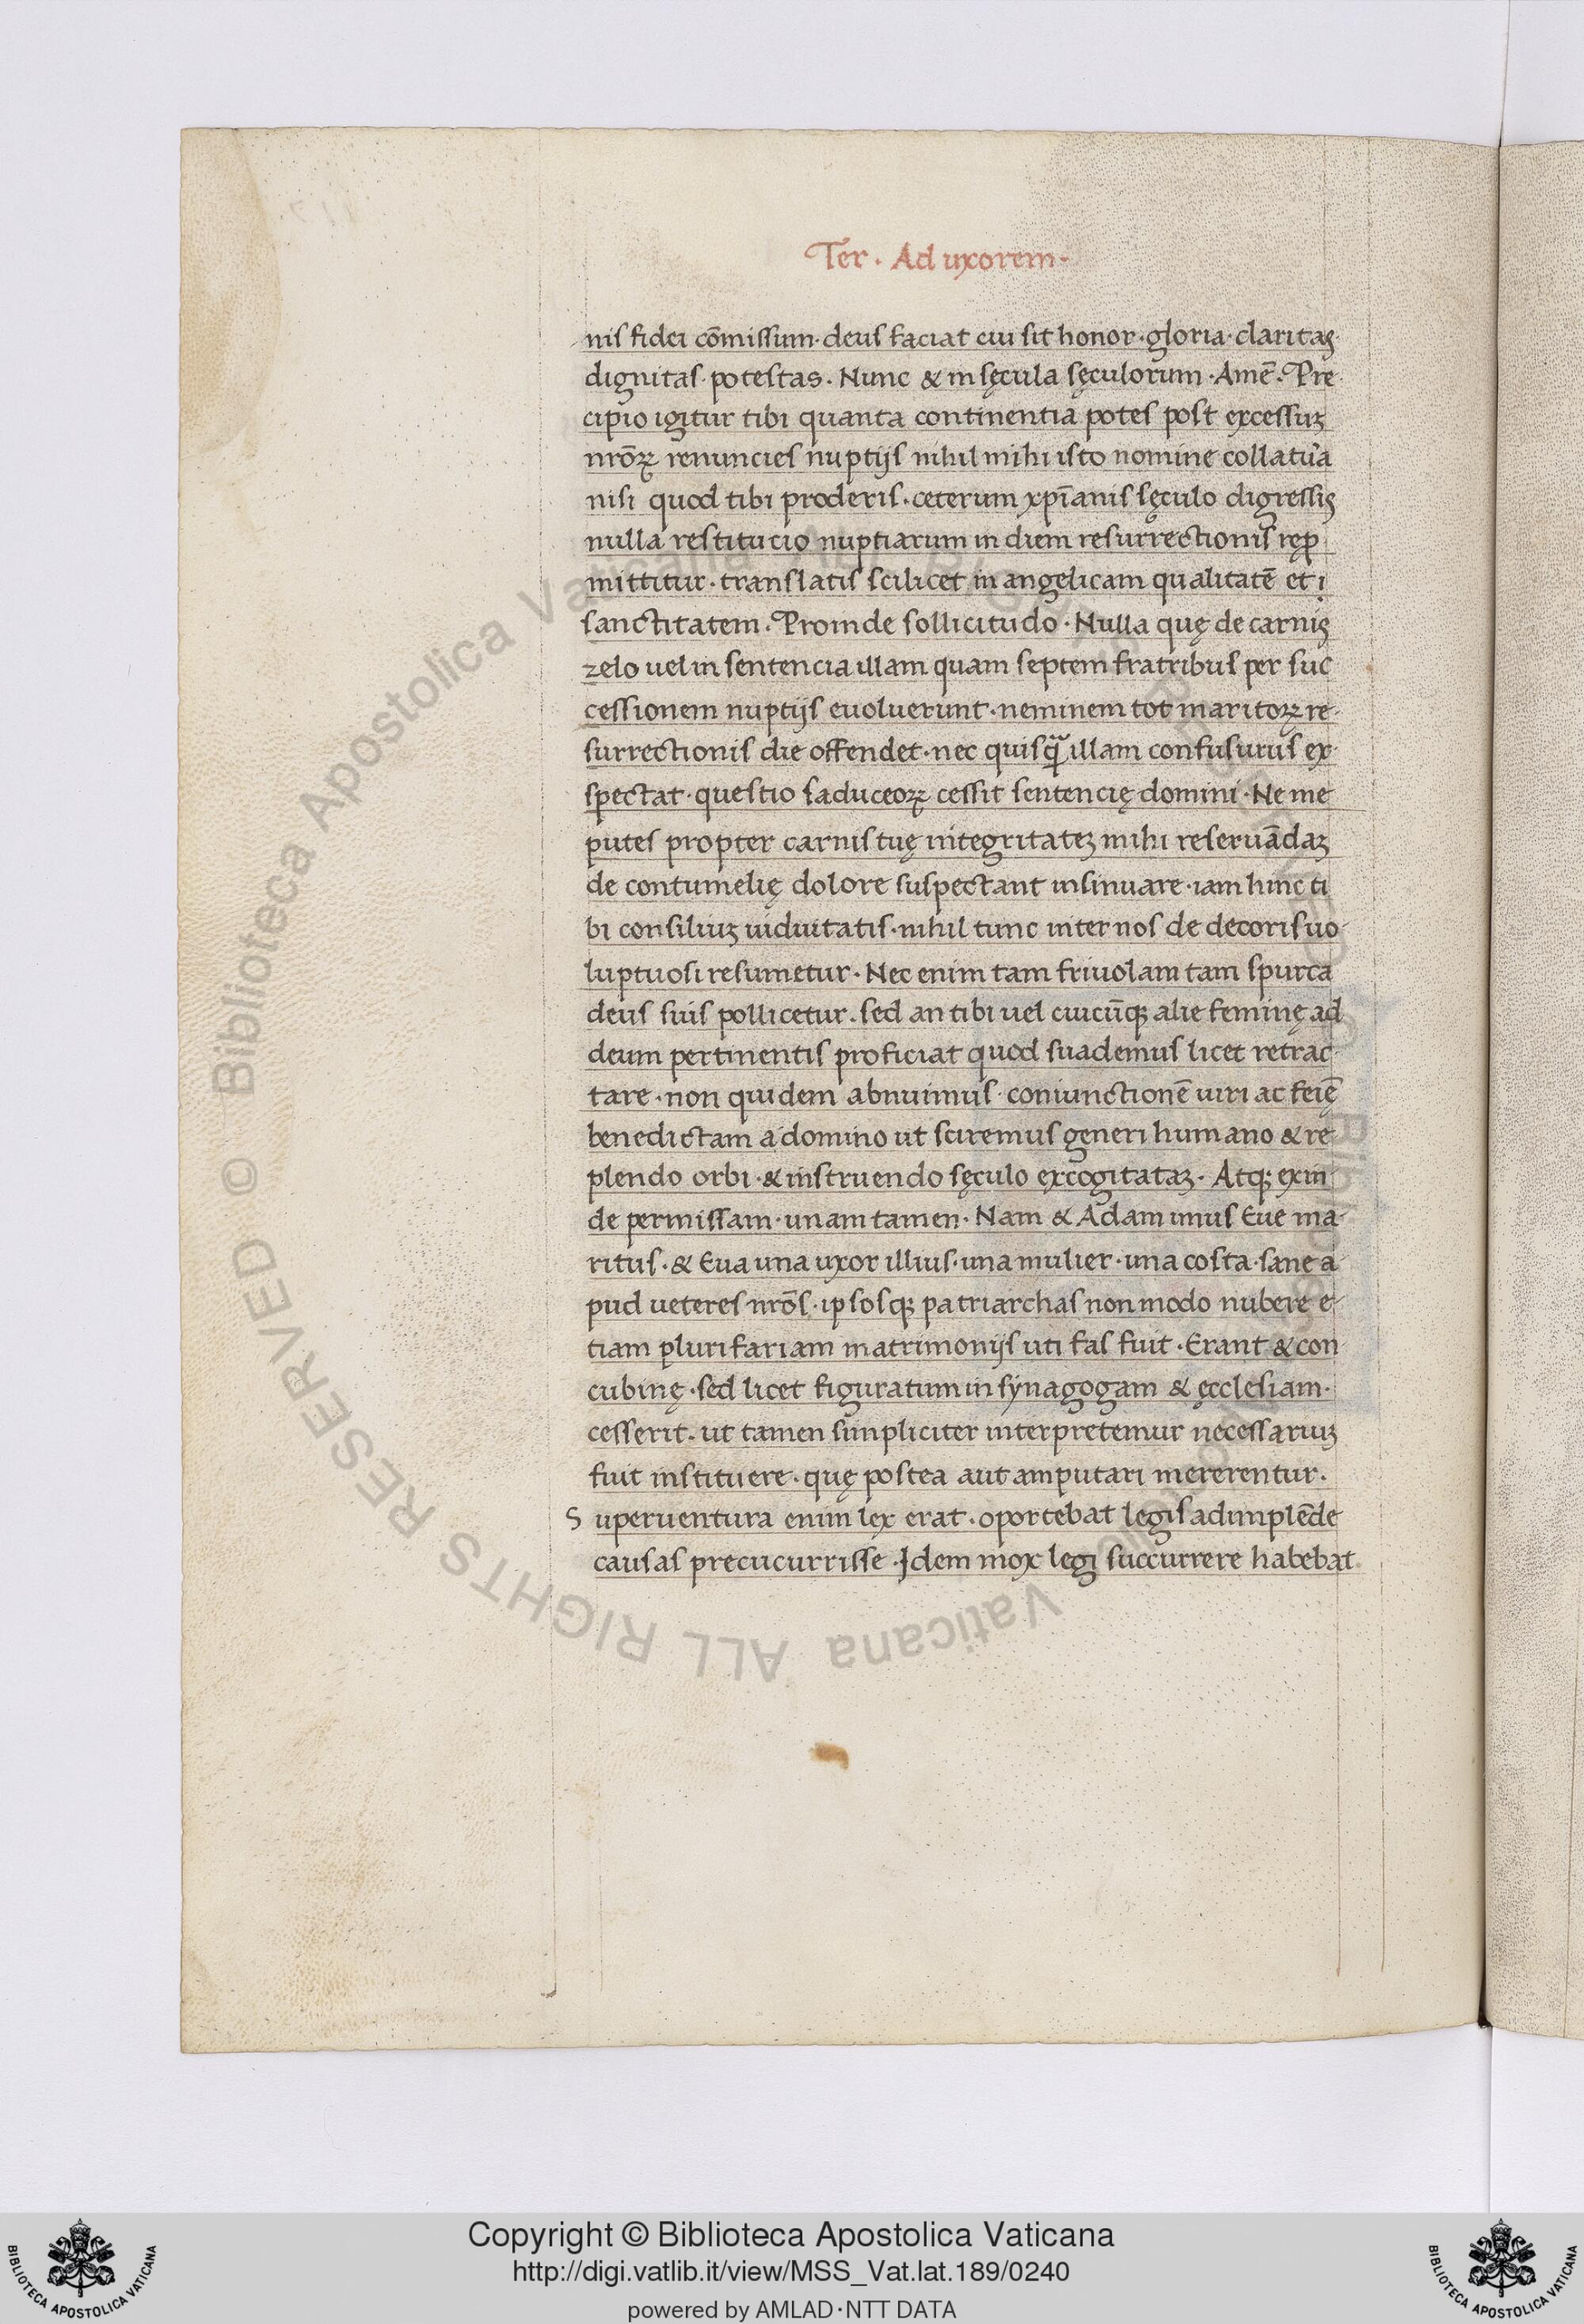 Ter · Ad uxorem ·
nis fidei cōmissum · deus faciat cui sit honor · gloria · claritas
dignitas potestas · Nunc & in sęcula sęculorum · Amē · Pre
cipio igitur tibi quanta continentia potes post excessuꝫ
nrōꝝ renuncies nuptijs nihil mihi isto nomine collatu'a
nisi quod tibi proderis · ceterum xpīanis sęculo digressis
nulla restitucio nuptiarum in diem resurrectionis rep̱
mittitur · translatis scilicet in angelicam qualitatē et i
sanctitatem · Proinde sollicitudo · Nulla quę de carnis
zelo uel in sentencia illam quam septem fratribus per suc
cessionem nuptijs euoluerunt · neminem tot maritoꝝ re·
surrectionis die offendet · nec quisq̄ illam confusurus ex·
spectat · questio saduceoꝝ cessit sentencię domini · Ne me
putes propter carnis tuę integritateꝫ mihi reseruādaꝫ
de contumelię dolore suspectant insinuare · iam hinc ti
bi consiliuꝫ uiduitatis · nihil tunc inter nos de decoris uo
luptuosi resumetur · Nec enim tam friuolam tam spurca
deus suis pollicetur · sed an tibi uel cuicūqꝫ alie feminę ad
deum pertinentis proficiat quod suademus licet retrac
tare · non quidem abnuimus · coniunctionē uiri ac feīe
benedictam a domino ut sciremus generi humano & re
plendo orbi · & instruendo sęculo excogitataꝫ · Atqꝫ exin
de permissam · unam tamen · Nam & Adam unus Eue ma·
ritus · & Eua una uxor illius · una mulier · una costa · sane a
pud ueteres nrōs · ipsosqꝫ patriarchas non modo nubere e·
tiam plurifariam matrimonijs uti fas fuit · Erant & con
cubinę · sed licet figuratum in synagogam & ęcclesiam ·
cesserit · ut tamen simpliciter interpretemur necessariuꝫ
fuit instituere · quę postea aut amputari mererentur ·
S uperuentura enim lex erat · oportebat legis adimplēde
causas precucurrisse · Idem mox legi succurrere habebat
© Biblioteca Apostolica Vaticana ALL RIGHTS RESERVED
Copyright © Biblioteca Apostolica Vaticana
http://digi.vatlib.it/view/MSS_Vat.lat.189/0240
powered by AMLAD·NTT DATA
BIBLIOTECA APOSTOLICA VATICANA
BIBLIOTECA APOSTOLICA VATICANA